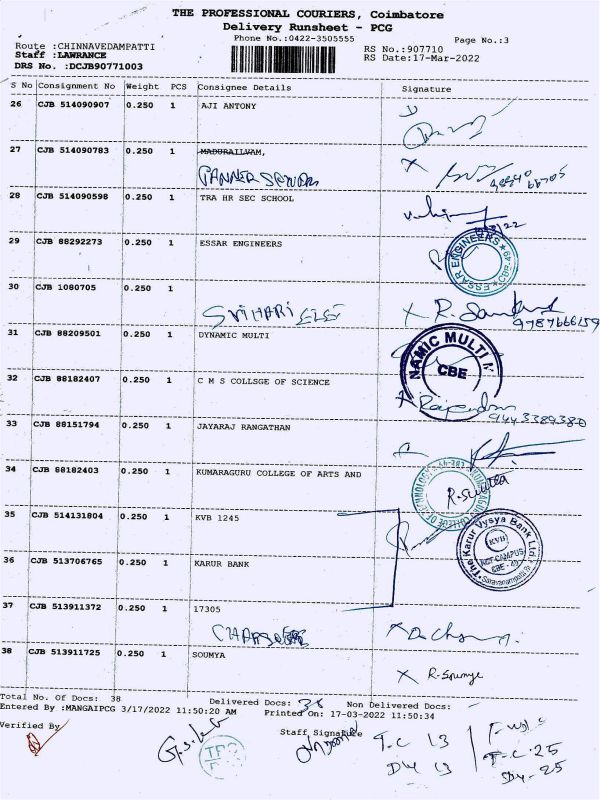 THE PROFESSIONAL COURIERS, Coimbatore
Delivery Runsheet - PCG
Phone No.:0422-3505555
Page No.:3
Route :CHINNAVEDAMPATTI
RS No.:907710
Staff :LAWRANCE
RS Date:17-Mar-2022
DRS No. :DCJB90771003
S No Consignment No Weight PCS Consignee Details Signature
26 CJB 514090907 0.250 1 AJI ANTONY
27 CJB 514090783 0.250 1 MADURAILVAM,
28 CJB 514090598 0.250 1 TRA HR SEC SCHOOL
29 CJB 88292273 0.250 1 ESSAR ENGINEERS
ESSAR ENGINEERS
30 CJB 1080705 0.250 1
SRIHARI ELE R. Sankar
9787666159
31 CJB 88209501 0.250 1 DYNAMIC MULTI
NAMIC MULTI
CBE
32 CJB 88182407 0.250 1 C M S COLLSGE OF SCIENCE
Rajendran
9443389380
33 CJB 88151794 0.250 1 JAYARAJ RANGATHAN
34 CJB 88182403 0.250 1 KUMARAGURU COLLEGE OF ARTS AND
R. Sumitra
35 CJB 514131804 0.250 1 KVB 1245
The Karur Vysya Bank Ltd.
KVB
KCT-CAMPUS
CBE - 49
Saravanampatti
36 CJB 513706765 0.250 1 KARUR BANK
37 CJB 513911372 0.250 1 17305
38 CJB 513911725 0.250 1 SOUMYA
R. Soumya
Total No. Of Docs: 38 Delivered Docs: 38 Non Delivered Docs:
Entered By :MANGAIPCG 3/17/2022 11:50:20 AM Printed On: 17-03-2022 11:50:34
Verified By Staff Signature
T.C 13
Dly 13
T.C. 25
Dly. 25